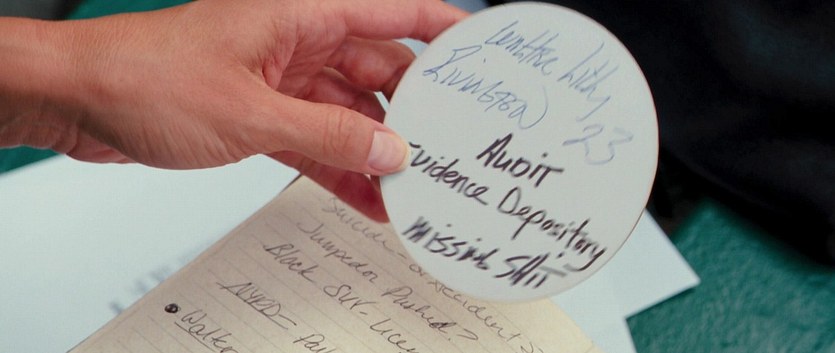 Lithy
Rivington 23
AUDIT
Evidence Depository
MISSING SHIT
Suicide - or Accident?
Jumped or Pushed?
Black SUV -
NYPD -
Walter